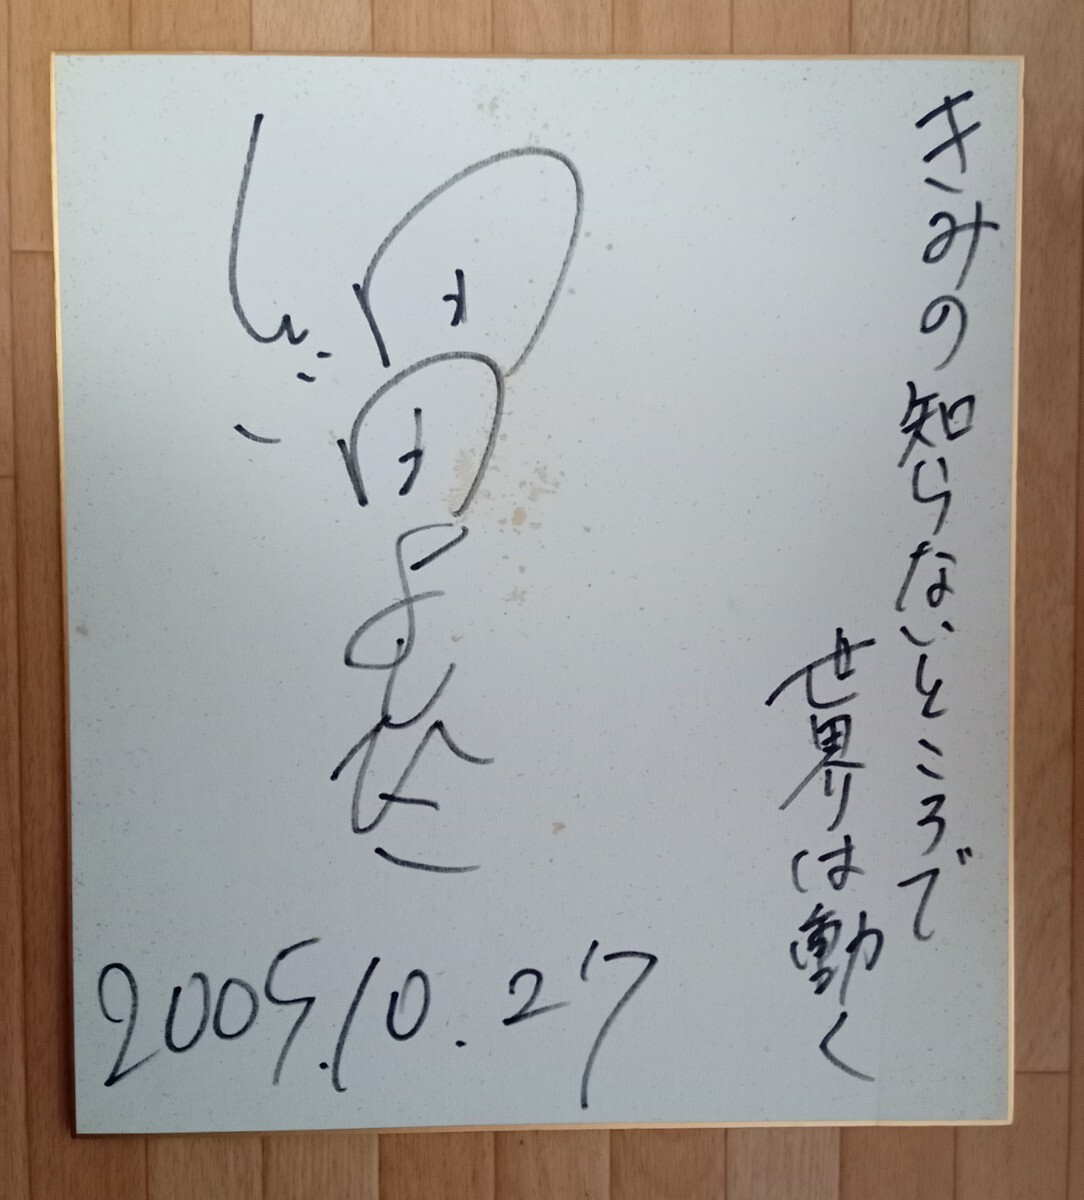 きみの知らないところで
世界は動く
2005.10.27